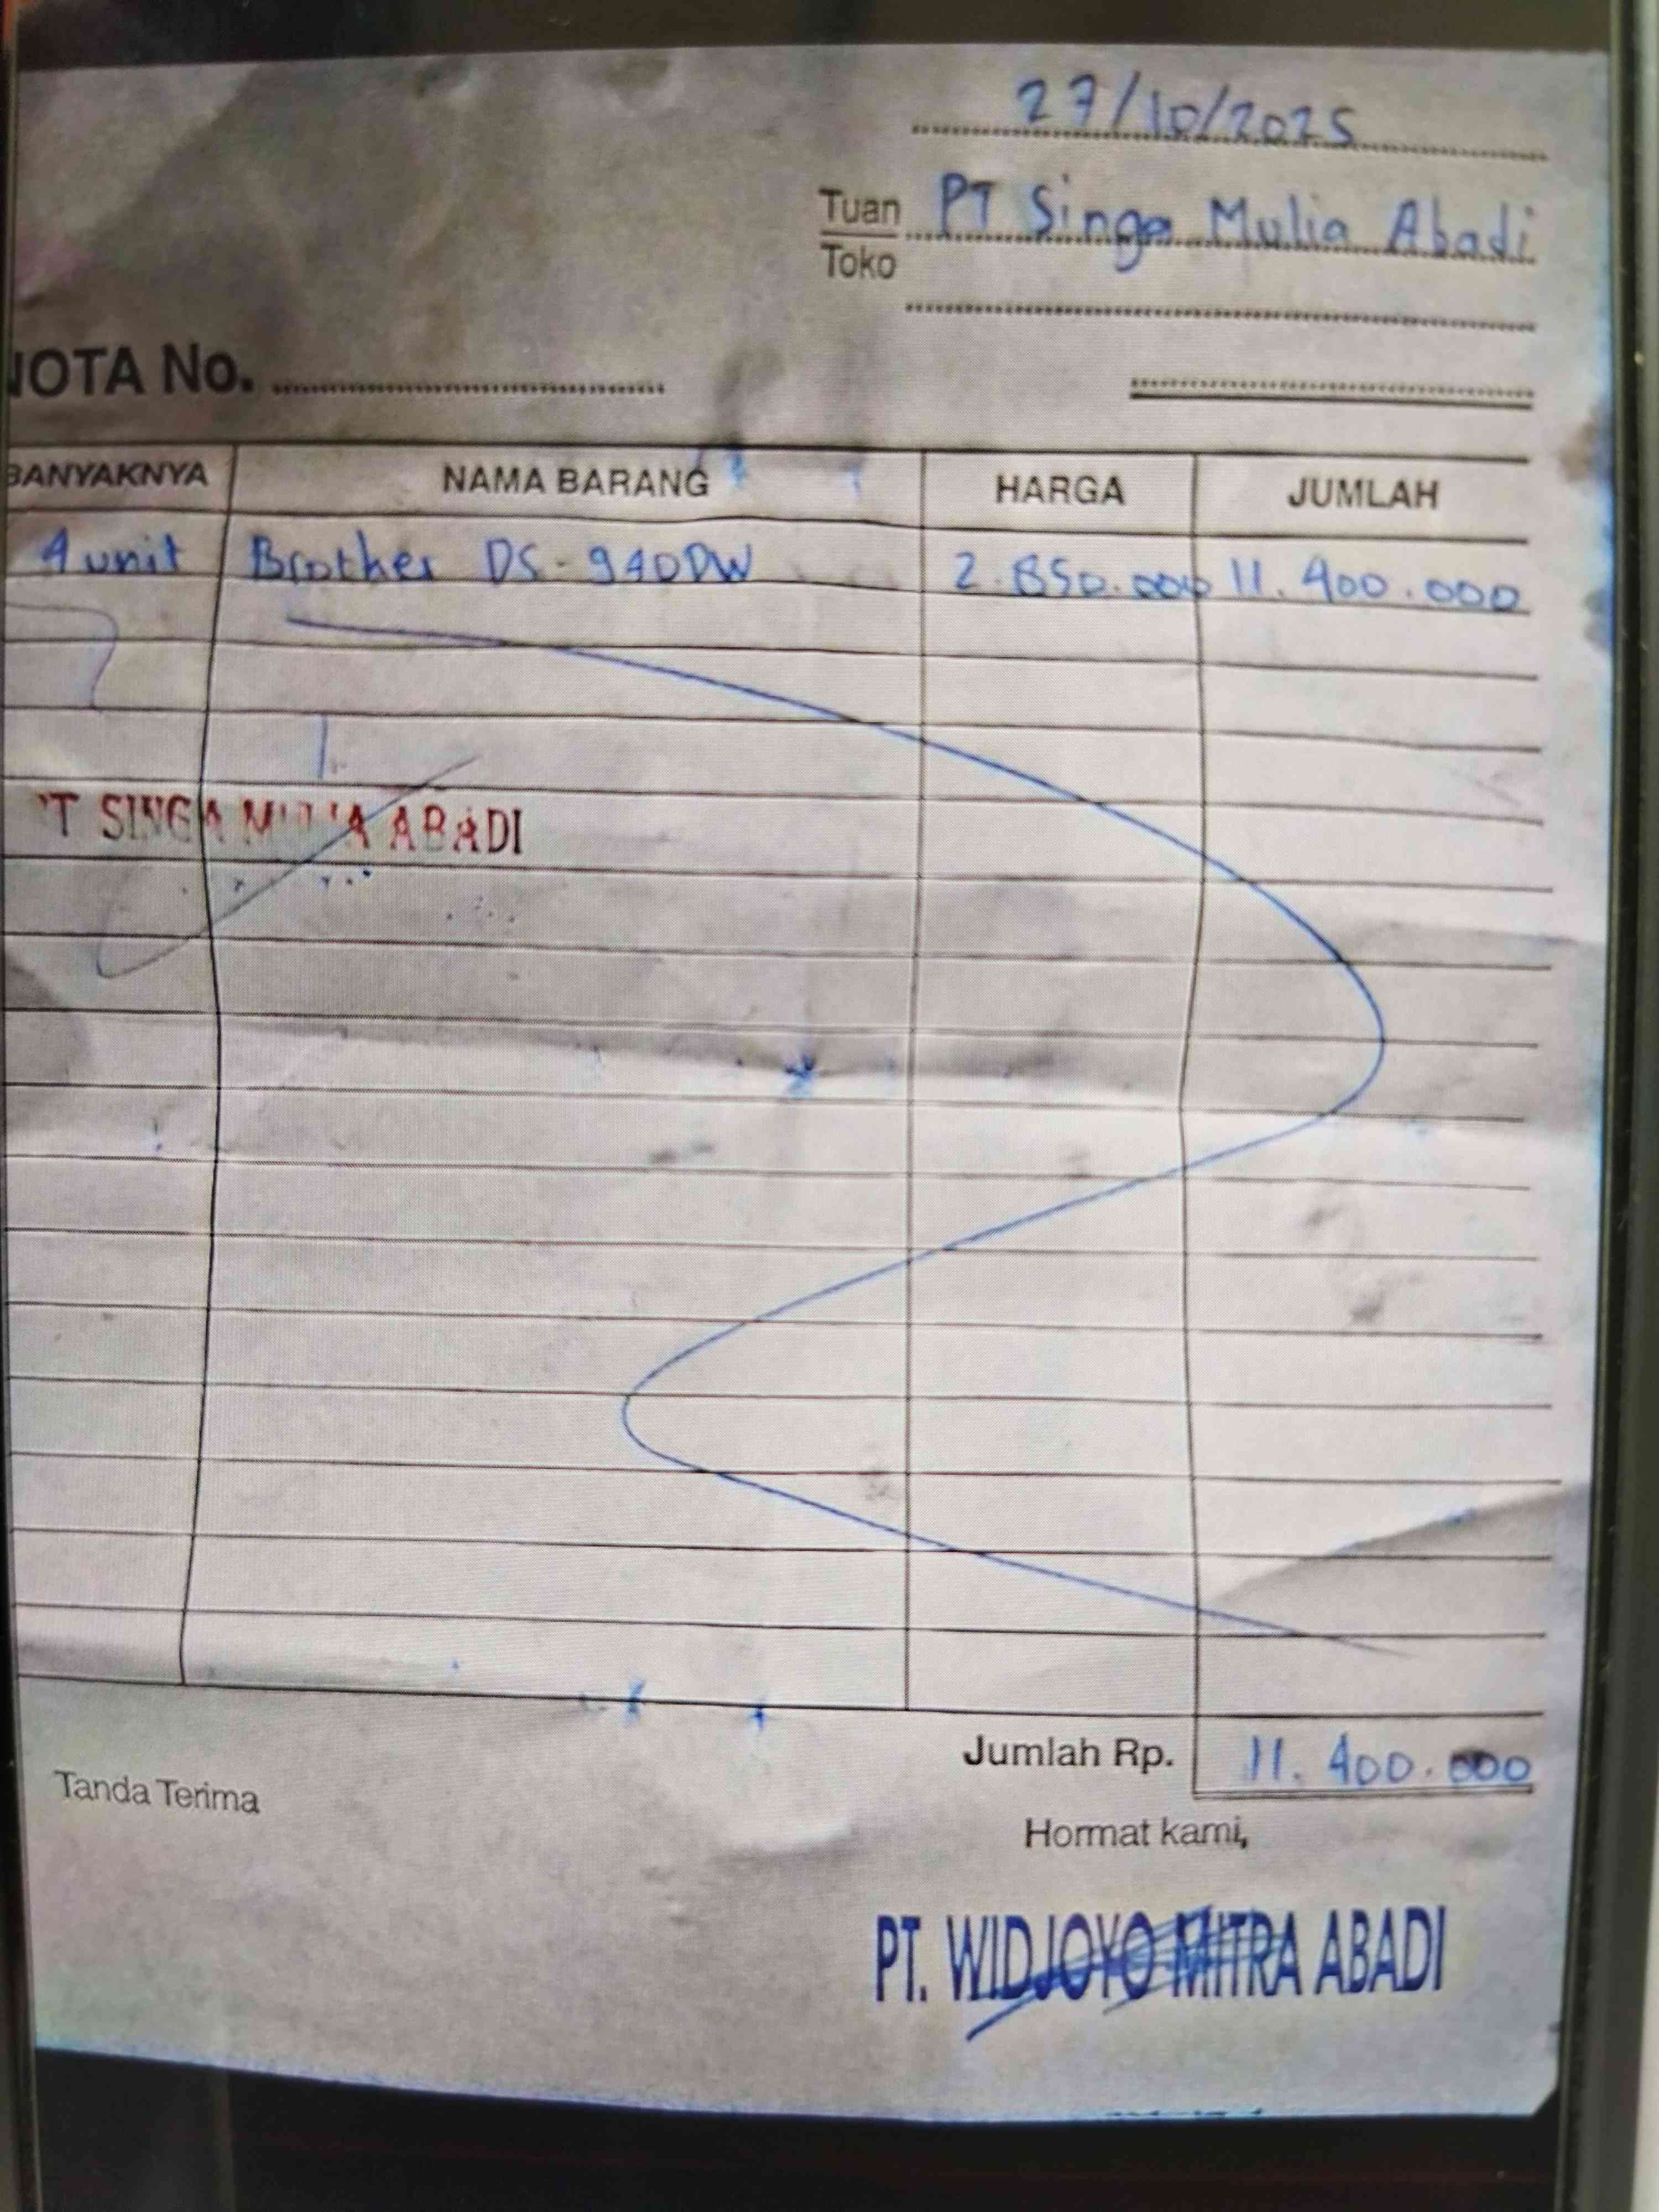 27/10/2025
Tuan PT Singa Mulia Abadi
Toko
NOTA No.
BANYAKNYA NAMA BARANG HARGA JUMLAH
4 unit Brother DS-940DW 2.850.000 11.400.000
PT SINGA MULIA ABADI
Jumlah Rp. 11.400.000
Tanda Terima
Hormat kami,
PT. WIDJOYO MITRA ABADI